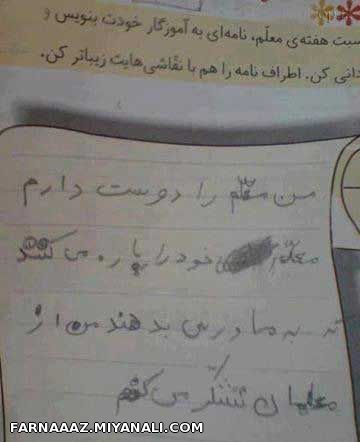 سبت هفته‌ی معلّم، نامه‌ای به آموزگار خودت بنویس و
دانی کن. اطراف نامه را هم با نقّاشی‌هایت زیباتر کن.
من معلّم را دوست دارم
معلّم خود را پاره می کند
تا به ما درس بدهند من از
معلمان تشکّر می کنم
FARNAAAZ.MIYANALI.COM